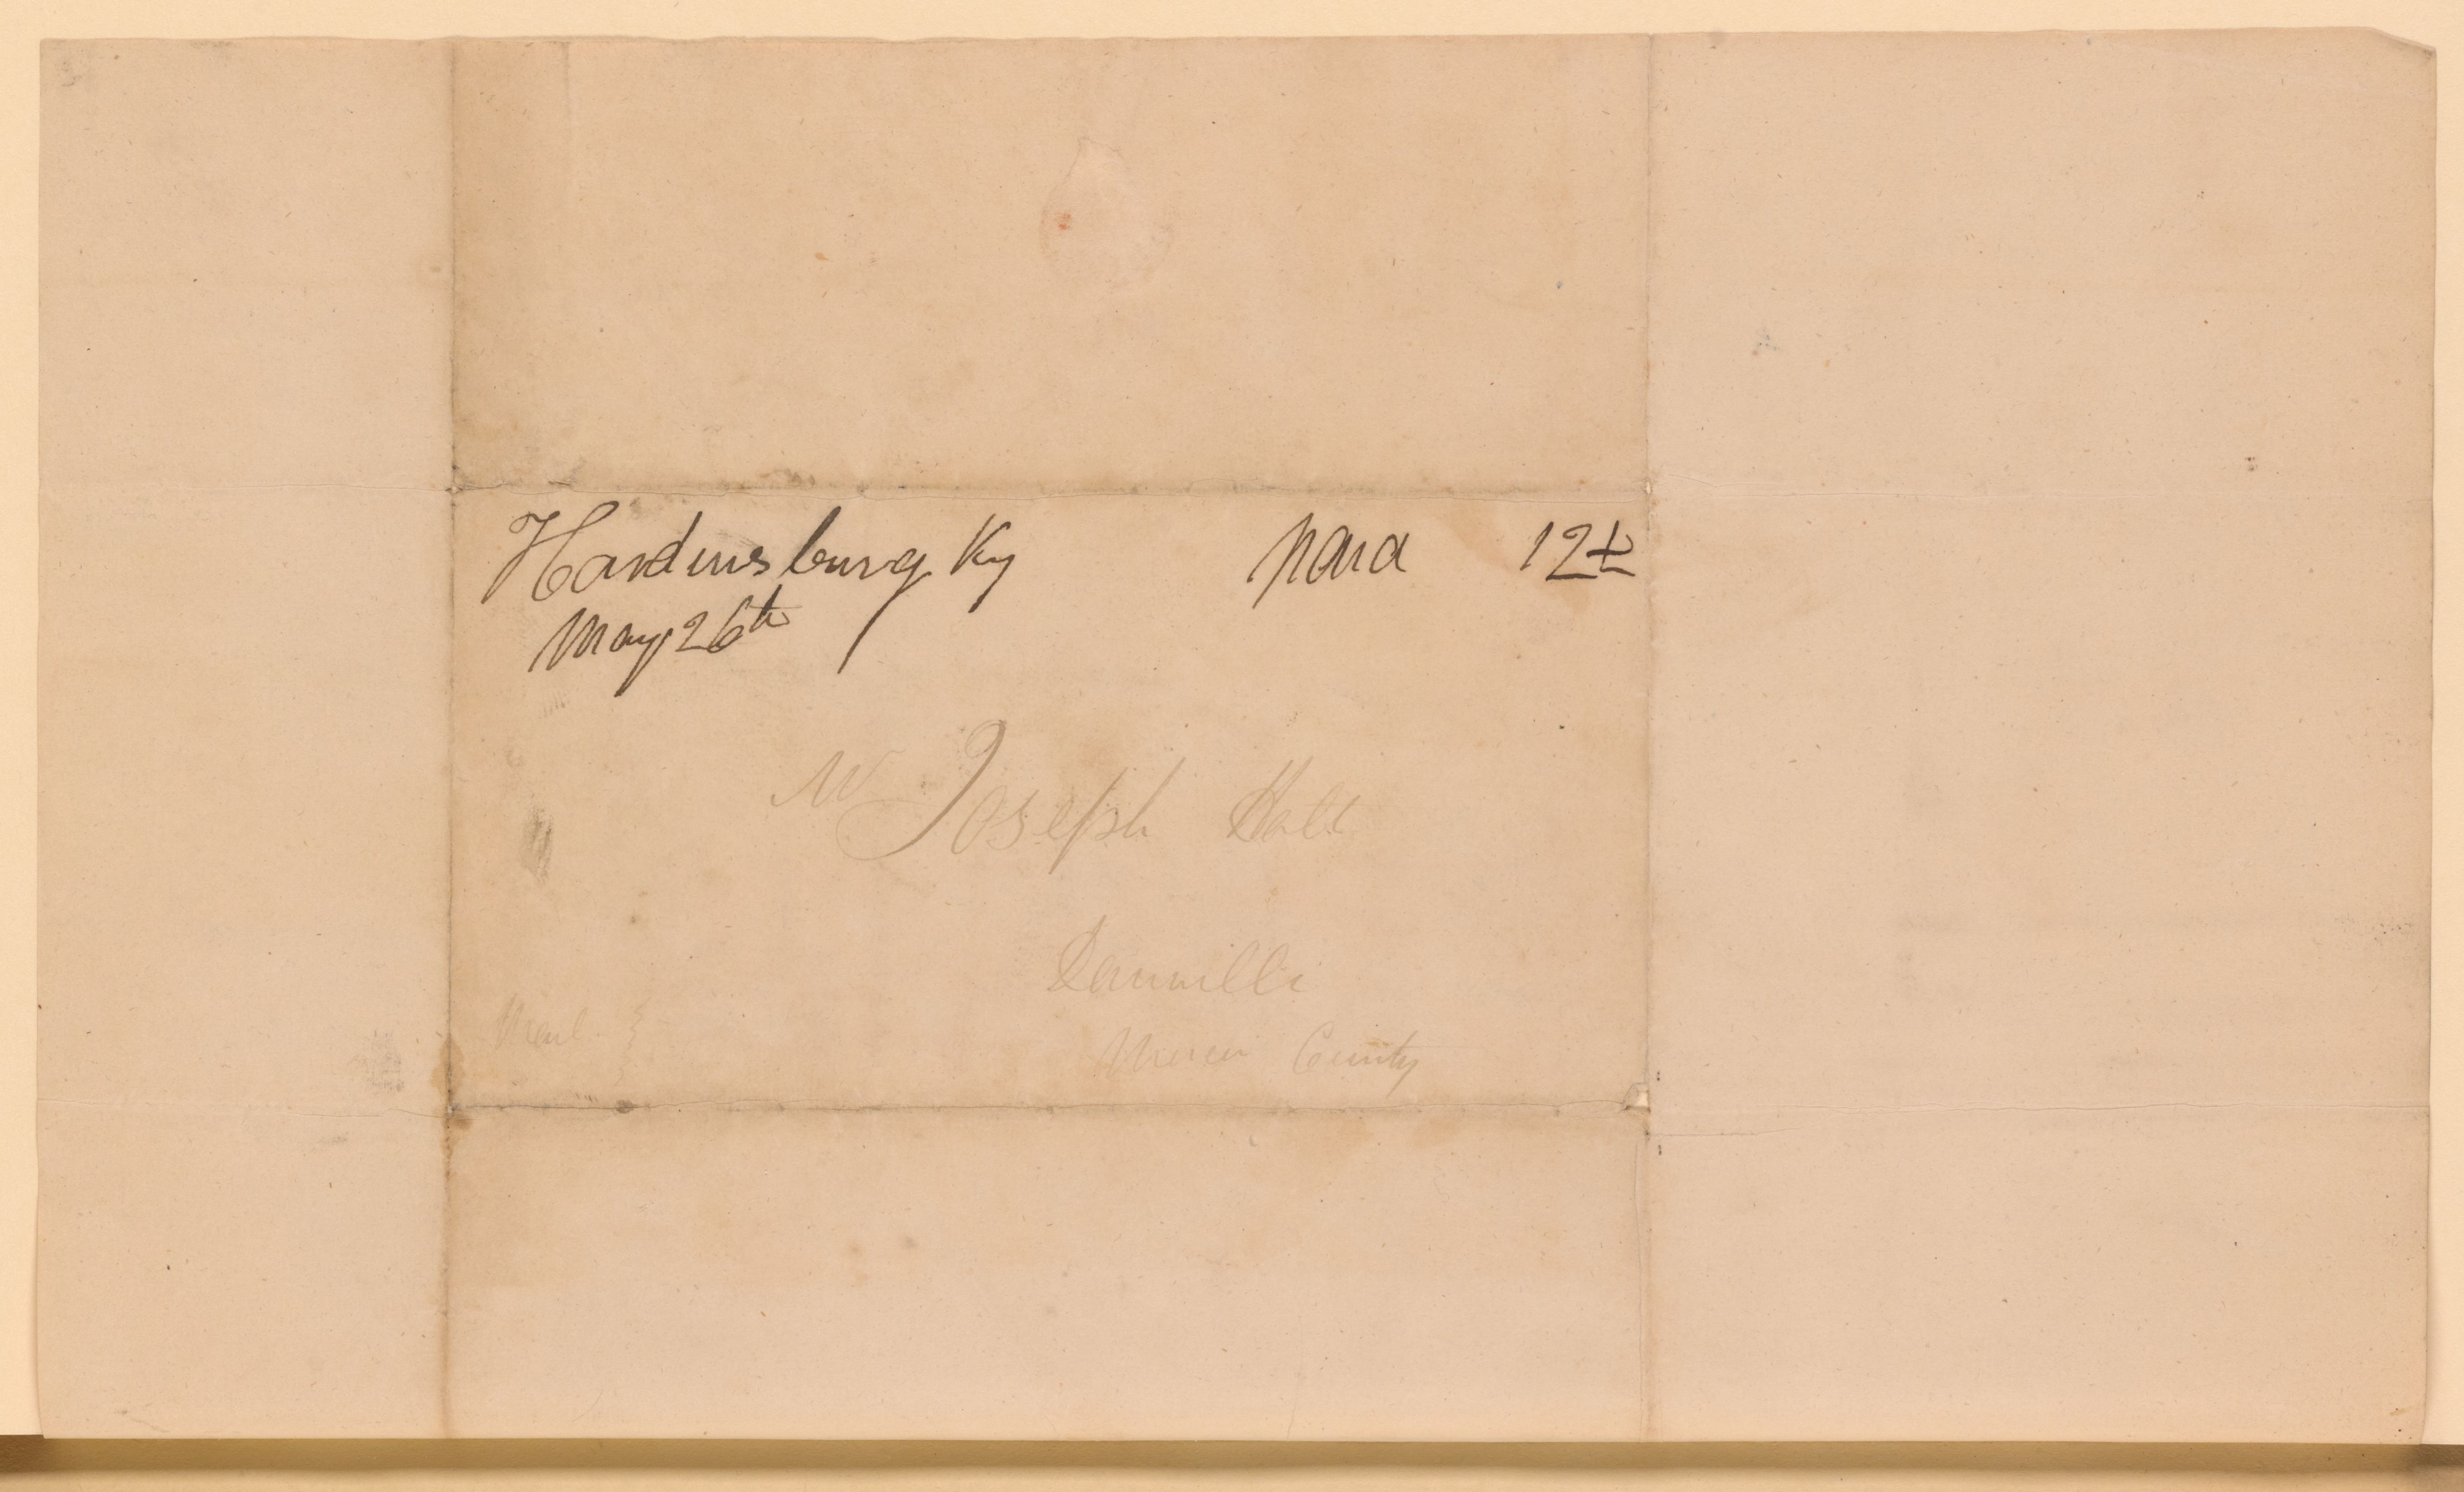 Hardinsburg Ky paid 12½
May 26th
Mr Joseph Holt
Danville
Mercer County
Mail